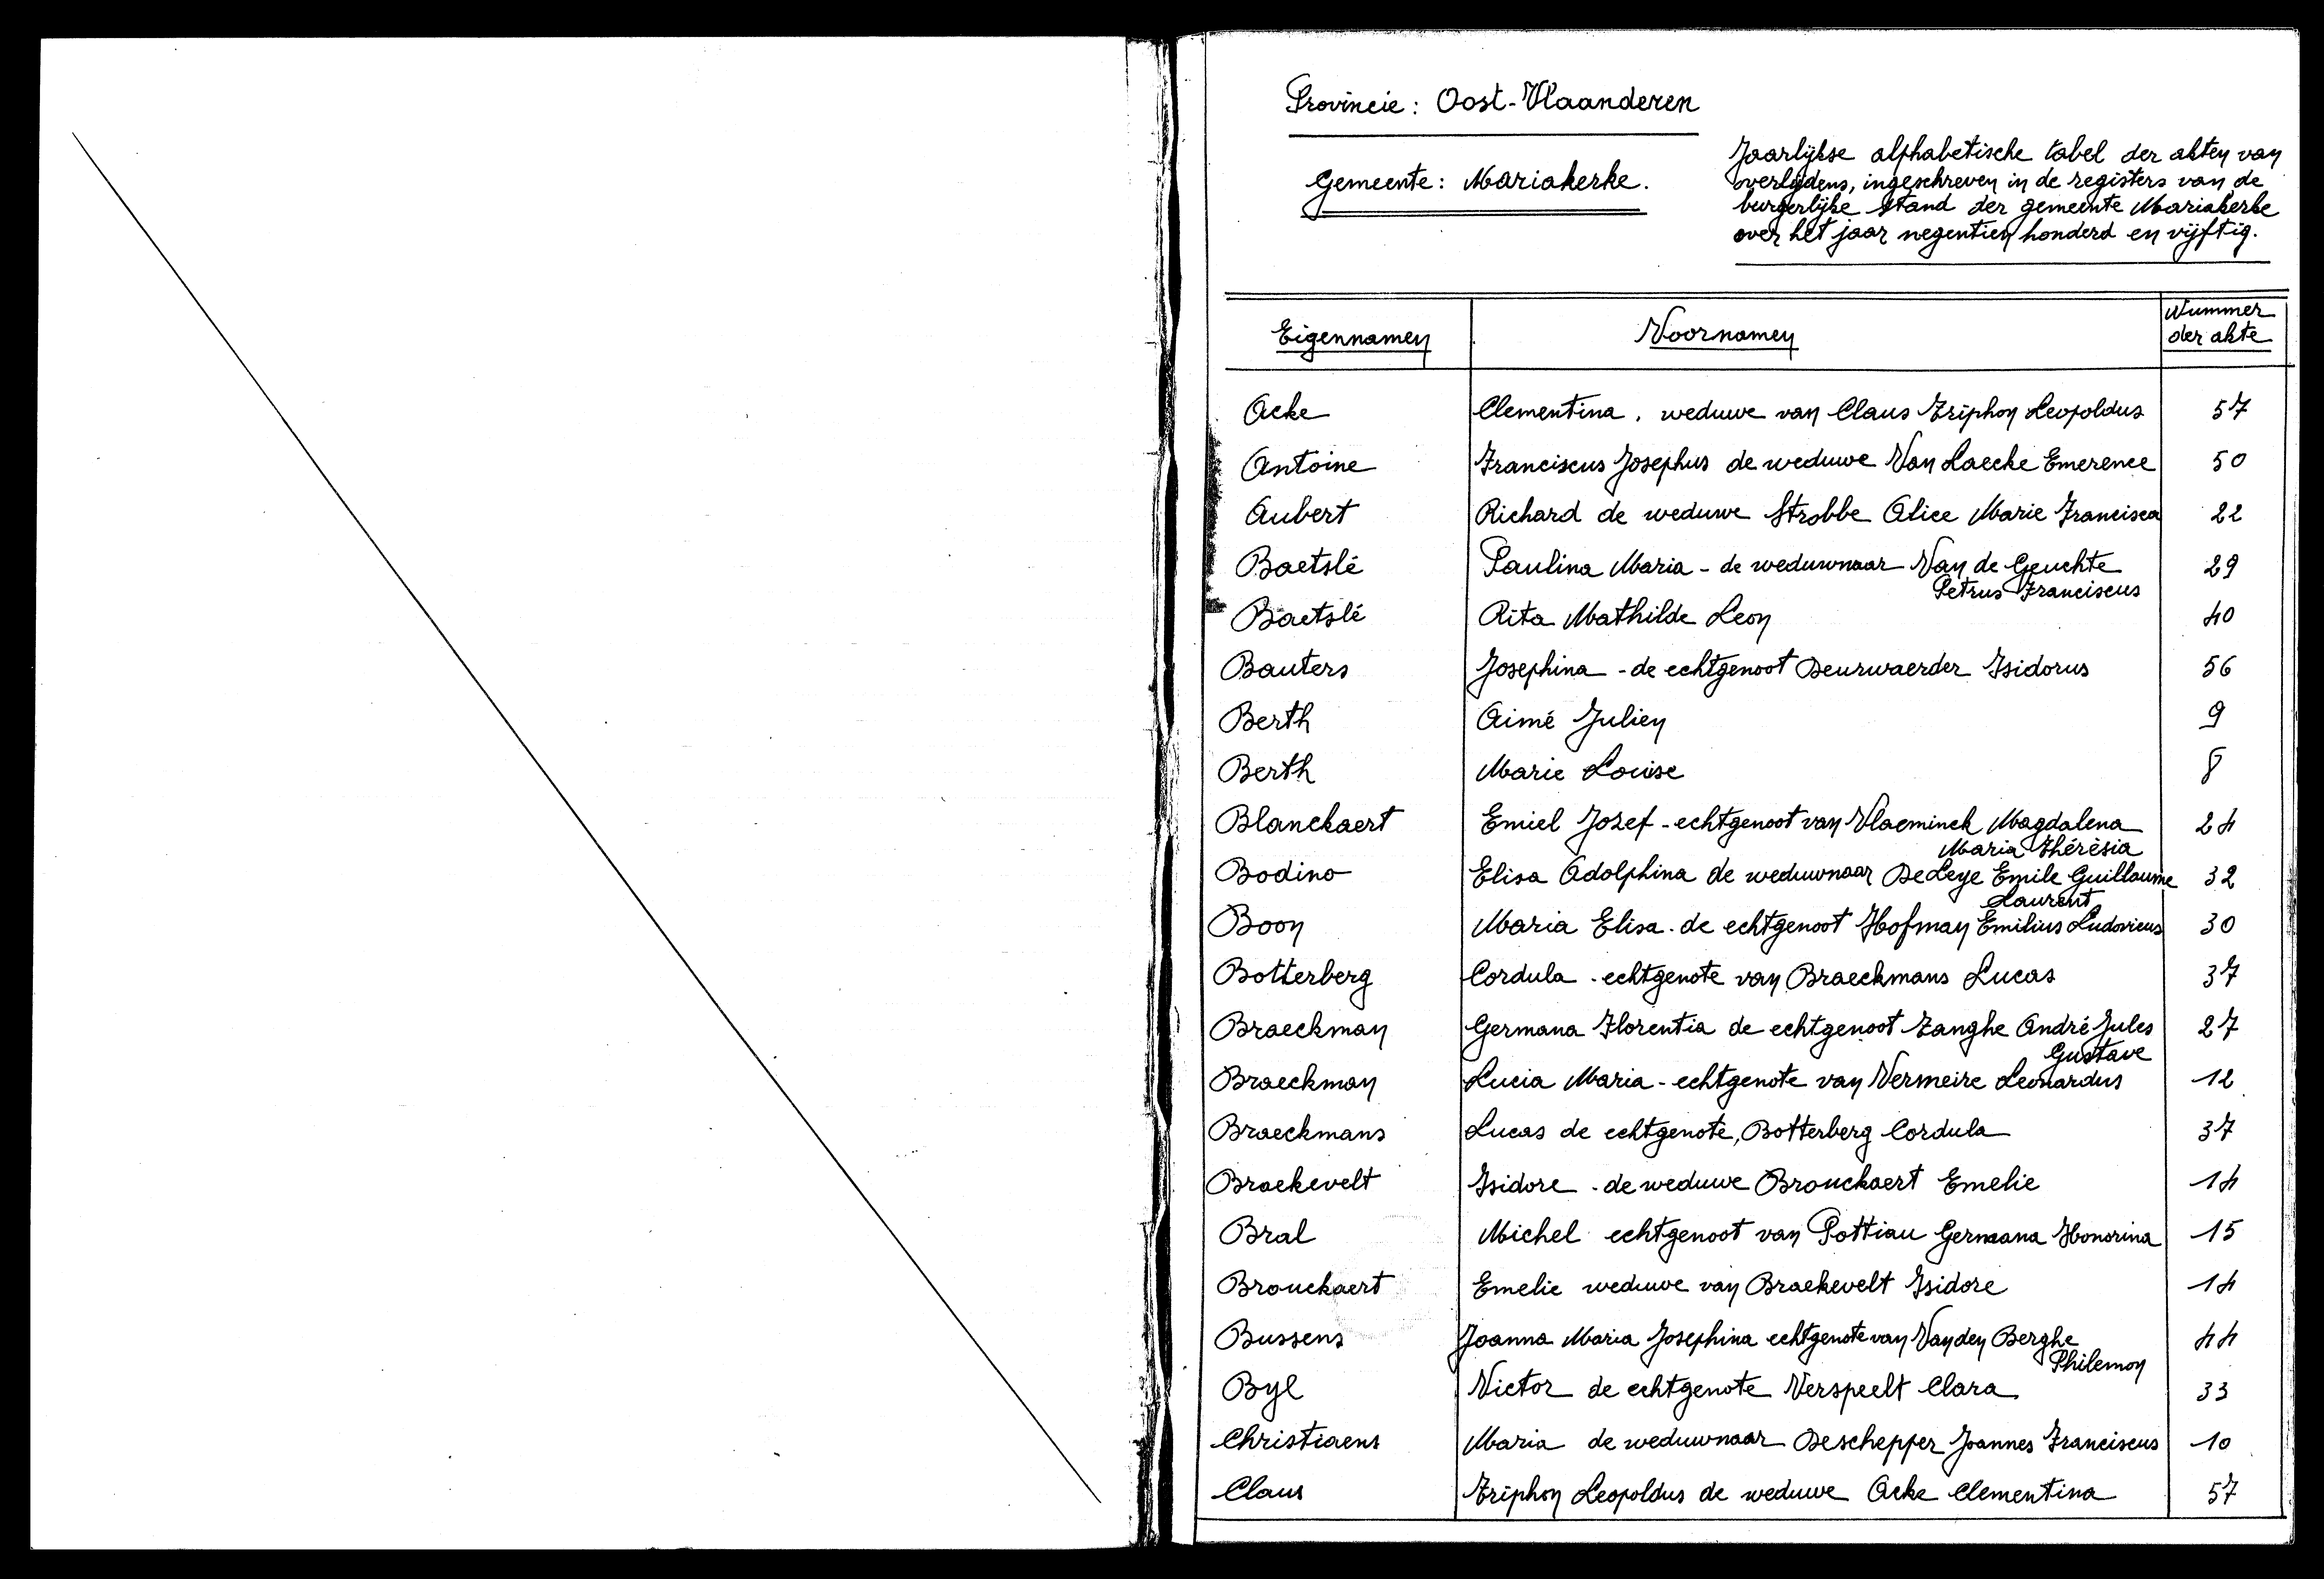 Provincie: Oost-Vlaanderen
Gemeente: Mariakerke.
Jaarlijkse alphabetische tabel der akten van
overlijdens, ingeschreven in de registers van de
burgerlijke stand der gemeente Mariakerke
over het jaar negentien honderd en vijftig.
Eigennamen Voornamen Nummer
der akte
Acke Clementina. weduwe van Claus Triphon Leopoldus 57
Antoine Franciscus Josephus de weduwe Van Laecke Emerence 50
Aubert Richard de weduwe Strobbe Alice Marie Francisca 22
Baetslé Paulina Maria - de weduwnaar Van de Geuchte 29
Petrus Franciscus
Baetslé Rita Mathilde Leon 40
Bauters Josephina - de echtgenoot Deurwaerder Isidorus 56
Berth Aimé Julien 9
Berth Marie Louise 8
Blanckaert Emiel Jozef - echtgenoot van Vlaeminck Magdalena 24
Maria Thérèsia
Bodino Elisa Adolphina de weduwnaar De Leye Emile Guillaume 32
Laurent
Boon Maria Elisa - de echtgenoot Hofman Emilius Ludovicus 30
Botterberg Cordula - echtgenote van Braeckmans Lucas 37
Braeckman Germana Florentia de echtgenoot Tanghe André Jules 27
Gustave
Braeckman Lucia Maria - echtgenote van Vermeire Leonardus 12
Braeckmans Lucas de echtgenote, Botterberg Cordula 37
Braekevelt Isidore - de weduwe Brouckaert Emelie 14
Bral Michel echtgenoot van Pottiau Germana Honorina 15
Brouckaert Emelie weduwe van Braekevelt Isidore 14
Bussens Joanna Maria Josephina echtgenote van Van den Berghe 44
Philemon
Byl Victor de echtgenote Verspeelt Clara 33
Christiaens Maria de weduwnaar Deschepper Joannes Franciscus 10
Claus Triphon Leopoldus de weduwe Acke Clementina 57